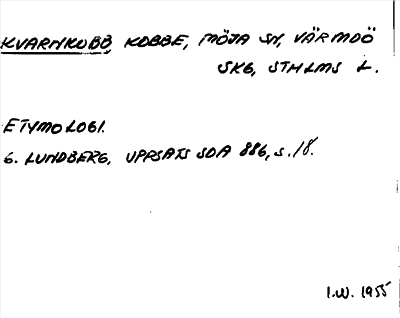 KVARNKOBB, KOBBE, MÖJA SN, VÄRMDÖ
SKG, STHLMS L.
ETYMOLOGI.
G. LUNDBERG, UPPSATS SOA 886, S. 18.
I.W. 1955